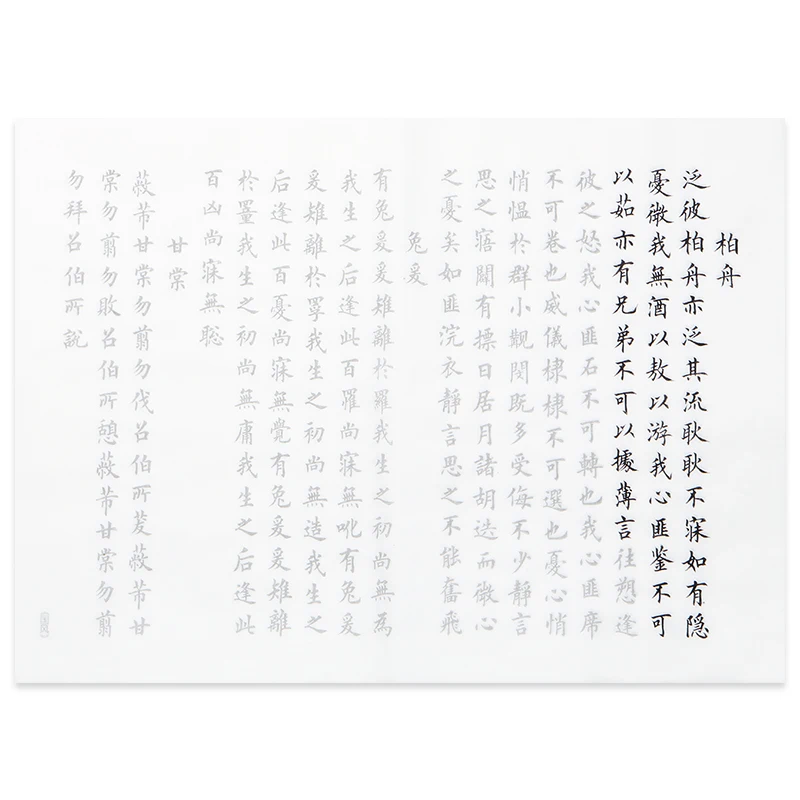 柏舟
泛彼柏舟亦泛其流耿耿不寐如有隐
憂微我無酒以敖以游我心匪鉴不可
以茹亦有兄弟不可以據薄言往愬逢
彼之怒我心匪石不可轉也我心匪席
不可卷也威儀棣棣不可選也憂心悄
悄愠於群小覯閔既多受侮不少靜言
思之寤闢有摽日居月諸胡迭而微心
之憂矣如匪浣衣靜言思之不能奮飛
兔爰
有兔爰爰雉離於羅我生之初尚無為
我生之后逢此百罹尚寐無吪有兔爰
爰雉離於罦我生之初尚無造我生之
后逢此百憂尚寐無覺有兔爰爰雉離
於罿我生之初尚無庸我生之后逢此
百凶尚寐無聡
甘棠
蔽芾甘棠勿翦勿伐召伯所茇蔽芾甘
棠勿翦勿敗召伯所憩蔽芾甘棠勿翦
勿拜召伯所說